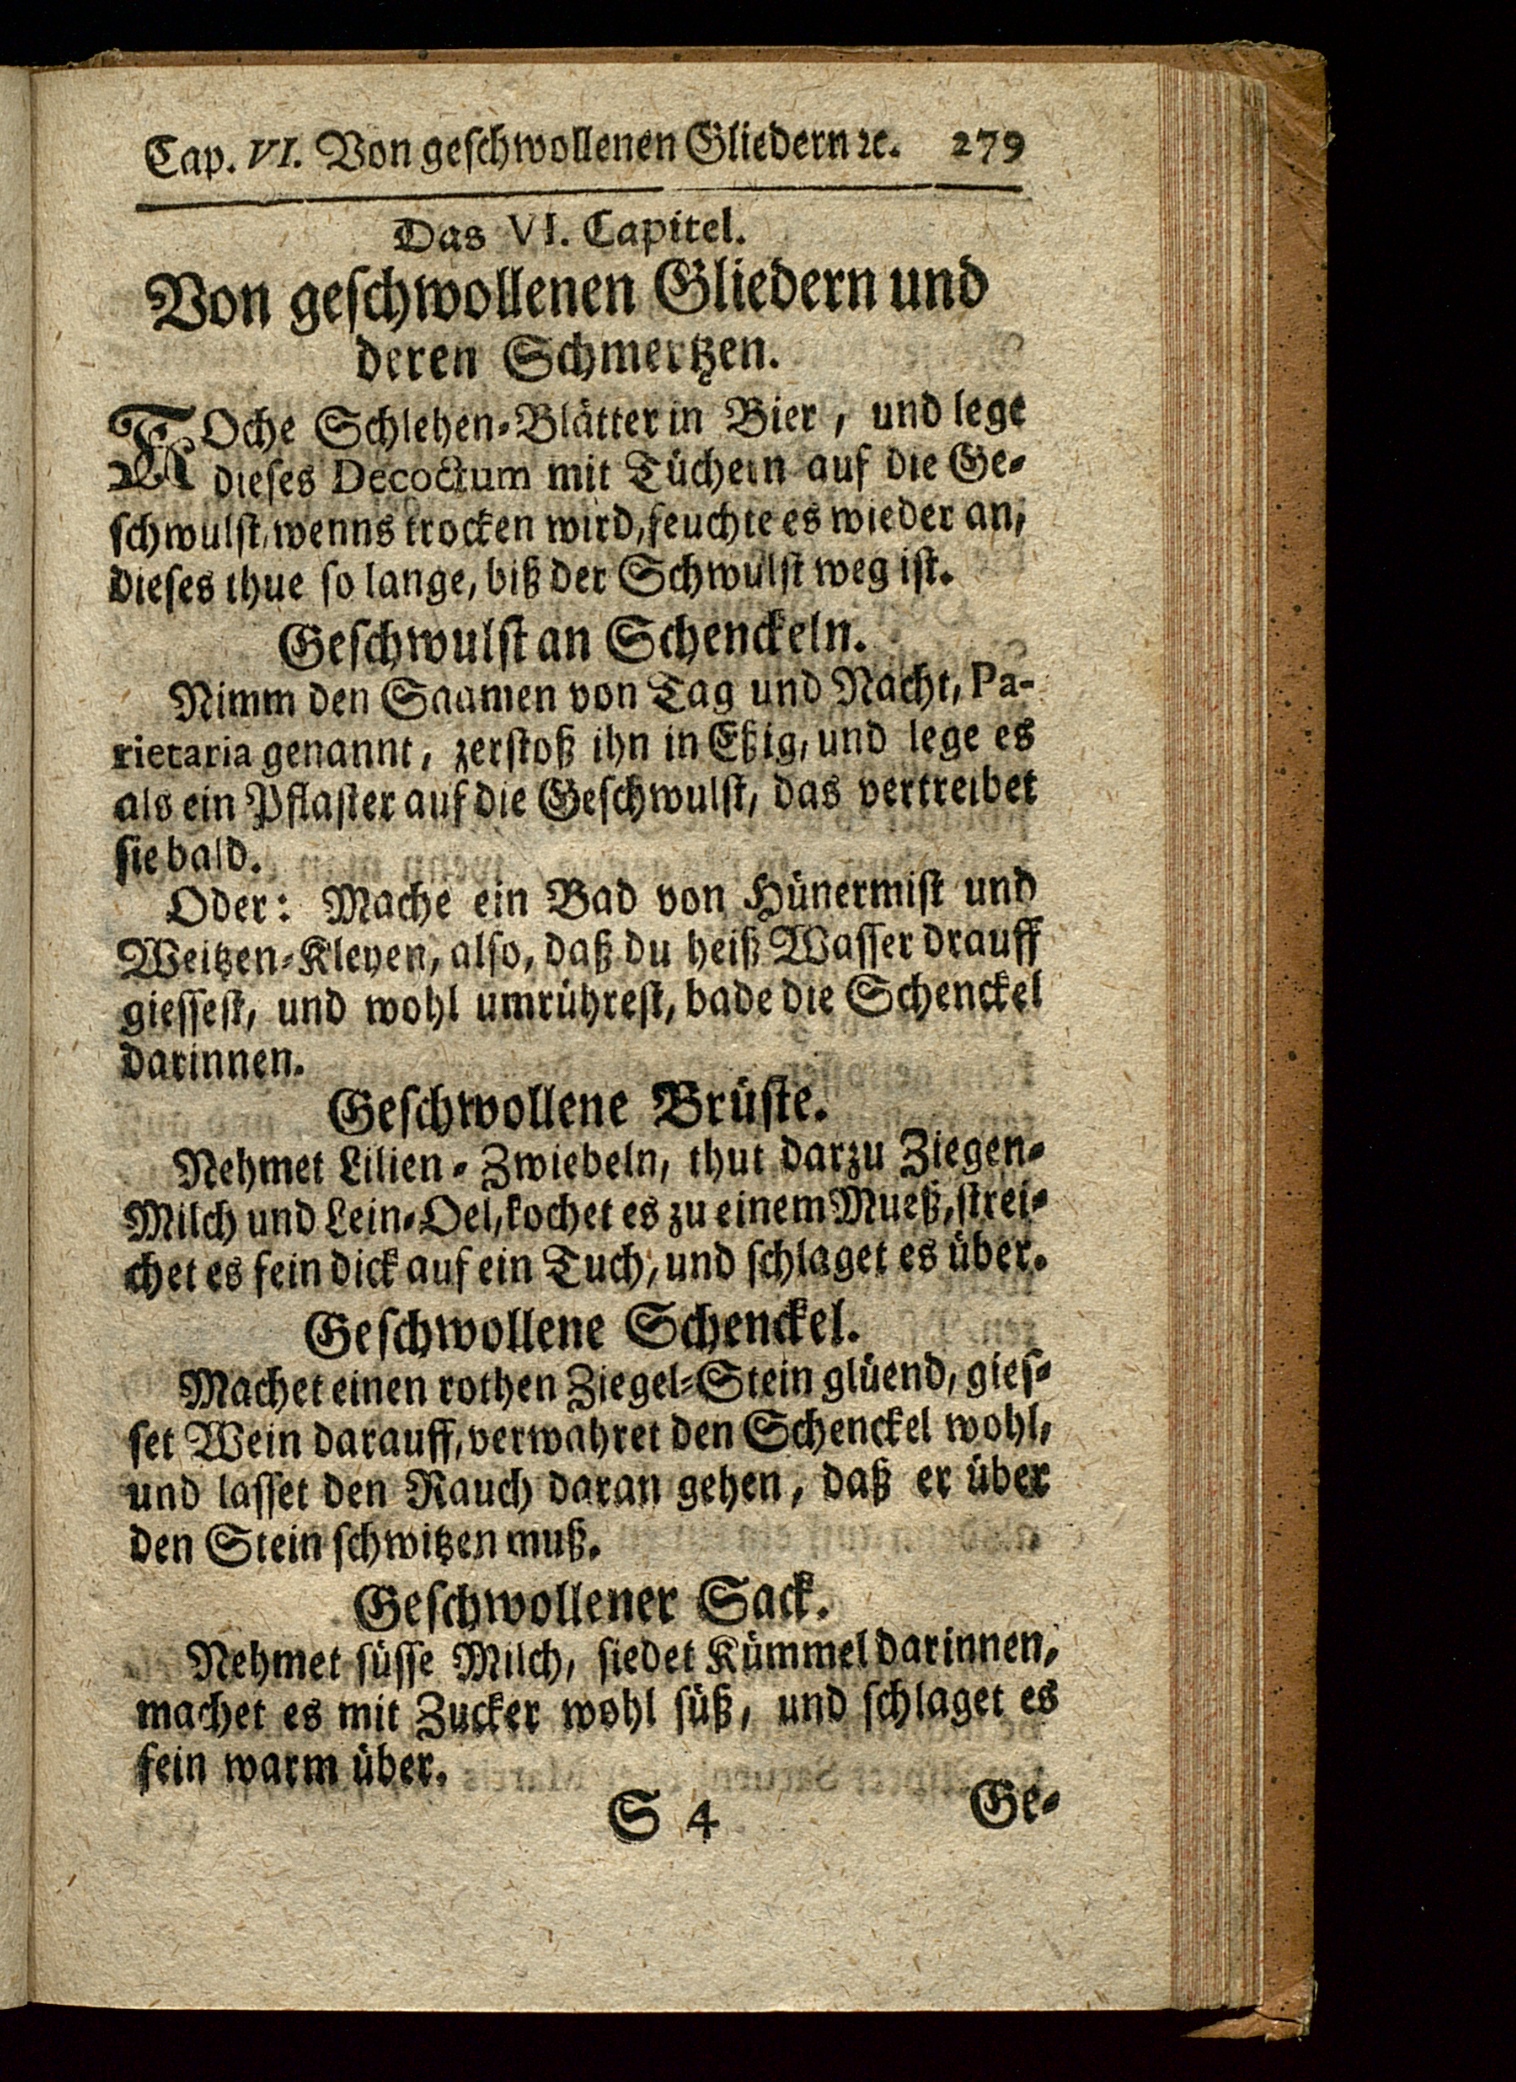 Cap. VI. Von geschwollenen Gliedern ꝛc. 279
Das VI. Capitel.
Von geschwollenen Gliedern und
deren Schmertzen.
KOche Schlehen-Blätter in Bier, und lege
dieses Decoctum mit Tüchern auf die Ge-
schwulst, wenns trocken wird, feuchte es wieder an,
dieses thue so lange, biß der Schwulst weg ist.
Geschwulst an Schenckeln.
Nimm den Saamen von Tag und Nacht, Pa-
rietaria genannt, zerstoß ihn in Eßig, und lege es
als ein Pflaster auf die Geschwulst, das vertreibet
sie bald.
Oder: Mache ein Bad von Hünermist und
Weitzen-Kleyen, also, daß du heiß Wasser drauff
giessest, und wohl umrührest, bade die Schenckel
darinnen.
Geschwollene Brüste.
Nehmet Lilien-Zwiebeln, thut darzu Ziegen-
Milch und Lein-Oel, kochet es zu einem Mueß, strei-
chet es fein dick auf ein Tuch, und schlaget es über.
Geschwollene Schenckel.
Machet einen rothen Ziegel-Stein glüend, gies-
set Wein darauff, verwahret den Schenckel wohl,
und lasset den Rauch daran gehen, daß er über
den Stein schwitzen muß.
Geschwollener Sack.
Nehmet süsse Milch, siedet Kümmel darinnen,
machet es mit Zucker wohl süß, und schlaget es
fein warm über.
S 4 Ge-